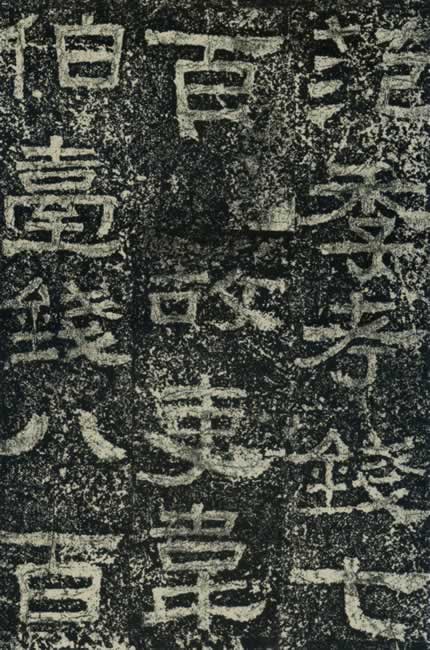 范季考錢七
百 故吏韋
伯臺錢八百